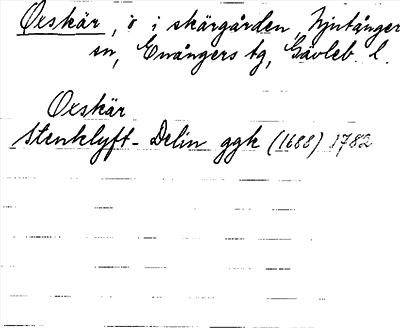 Oxskär, ö i skärgården, Njutånger
sn, Enångers tg, Gävleb. l.
Oxskär
Stenklyft-Delin ggk (1688) 1782